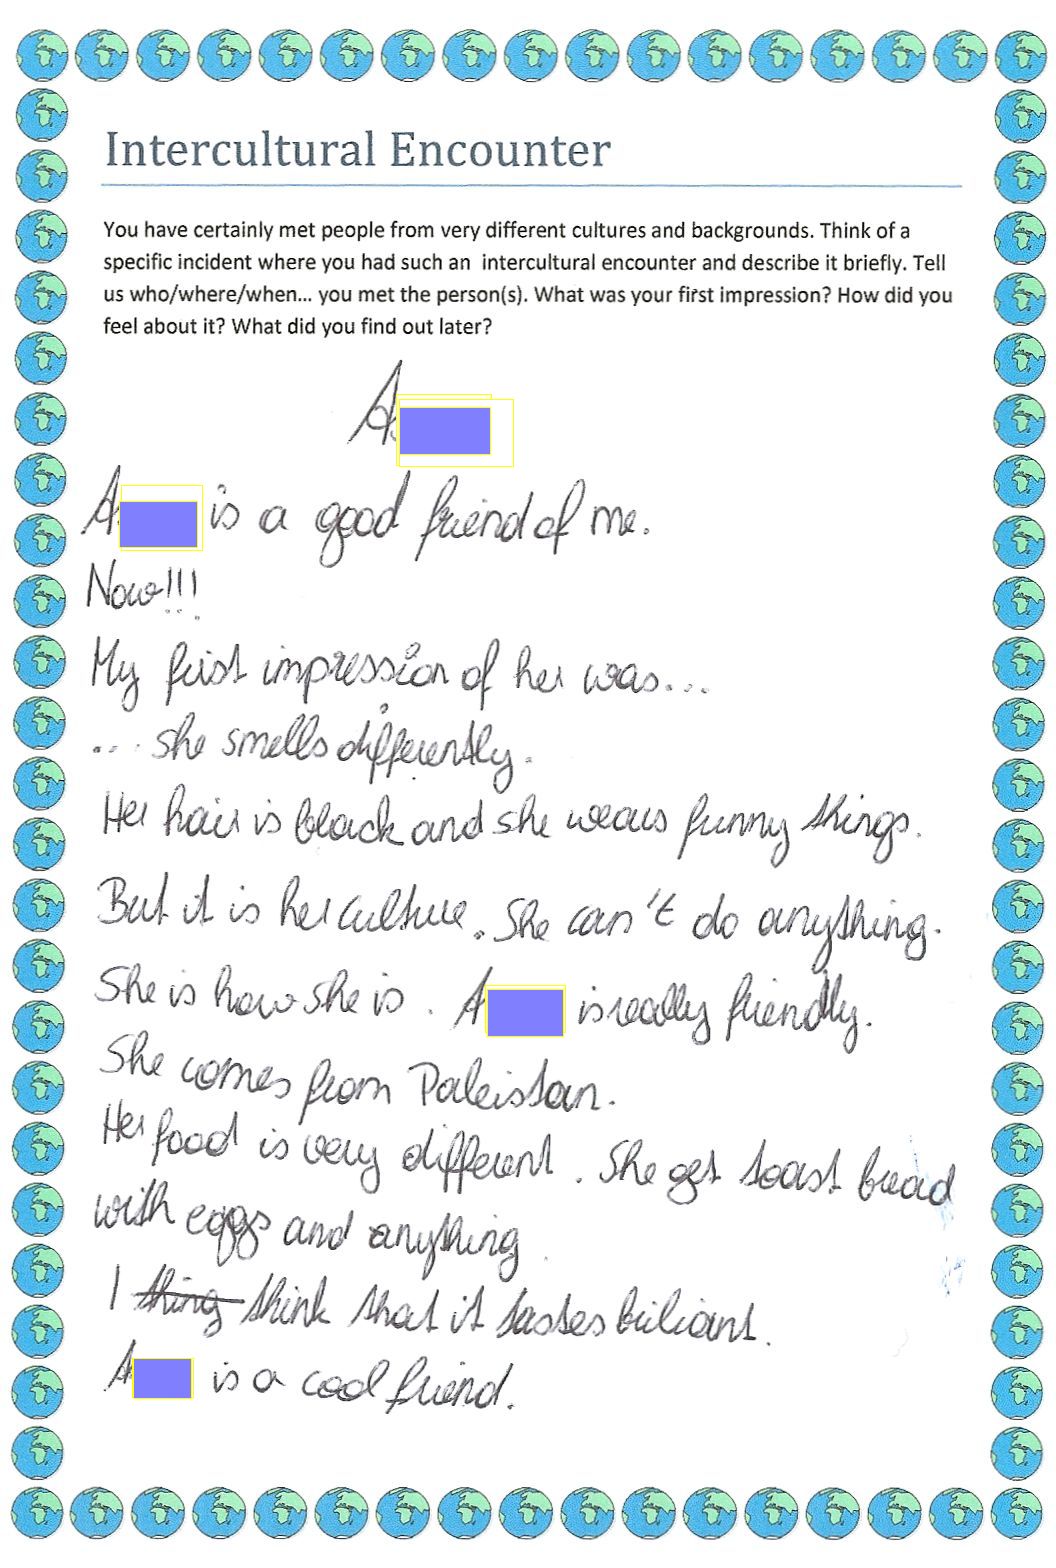 Intercultural Encounter
You have certainly met people from very different cultures and backgrounds. Think of a
specific incident where you had such an intercultural encounter and describe it briefly. Tell
us who/where/when... you met the person(s). What was your first impression? How did you
feel about it? What did you find out later?
A
A is a good friend of me.
Now!!!
My first impression of her was...
... she smells differently.
Her hair is black and she wears funny things.
But it is her culture. She can't do anything.
She is how she is. A is really friendly.
She comes from Pakistan.
Her food is very different. She get toast bread
with eggs and anything
I thing think that it tastes briliant.
A is a cool friend.